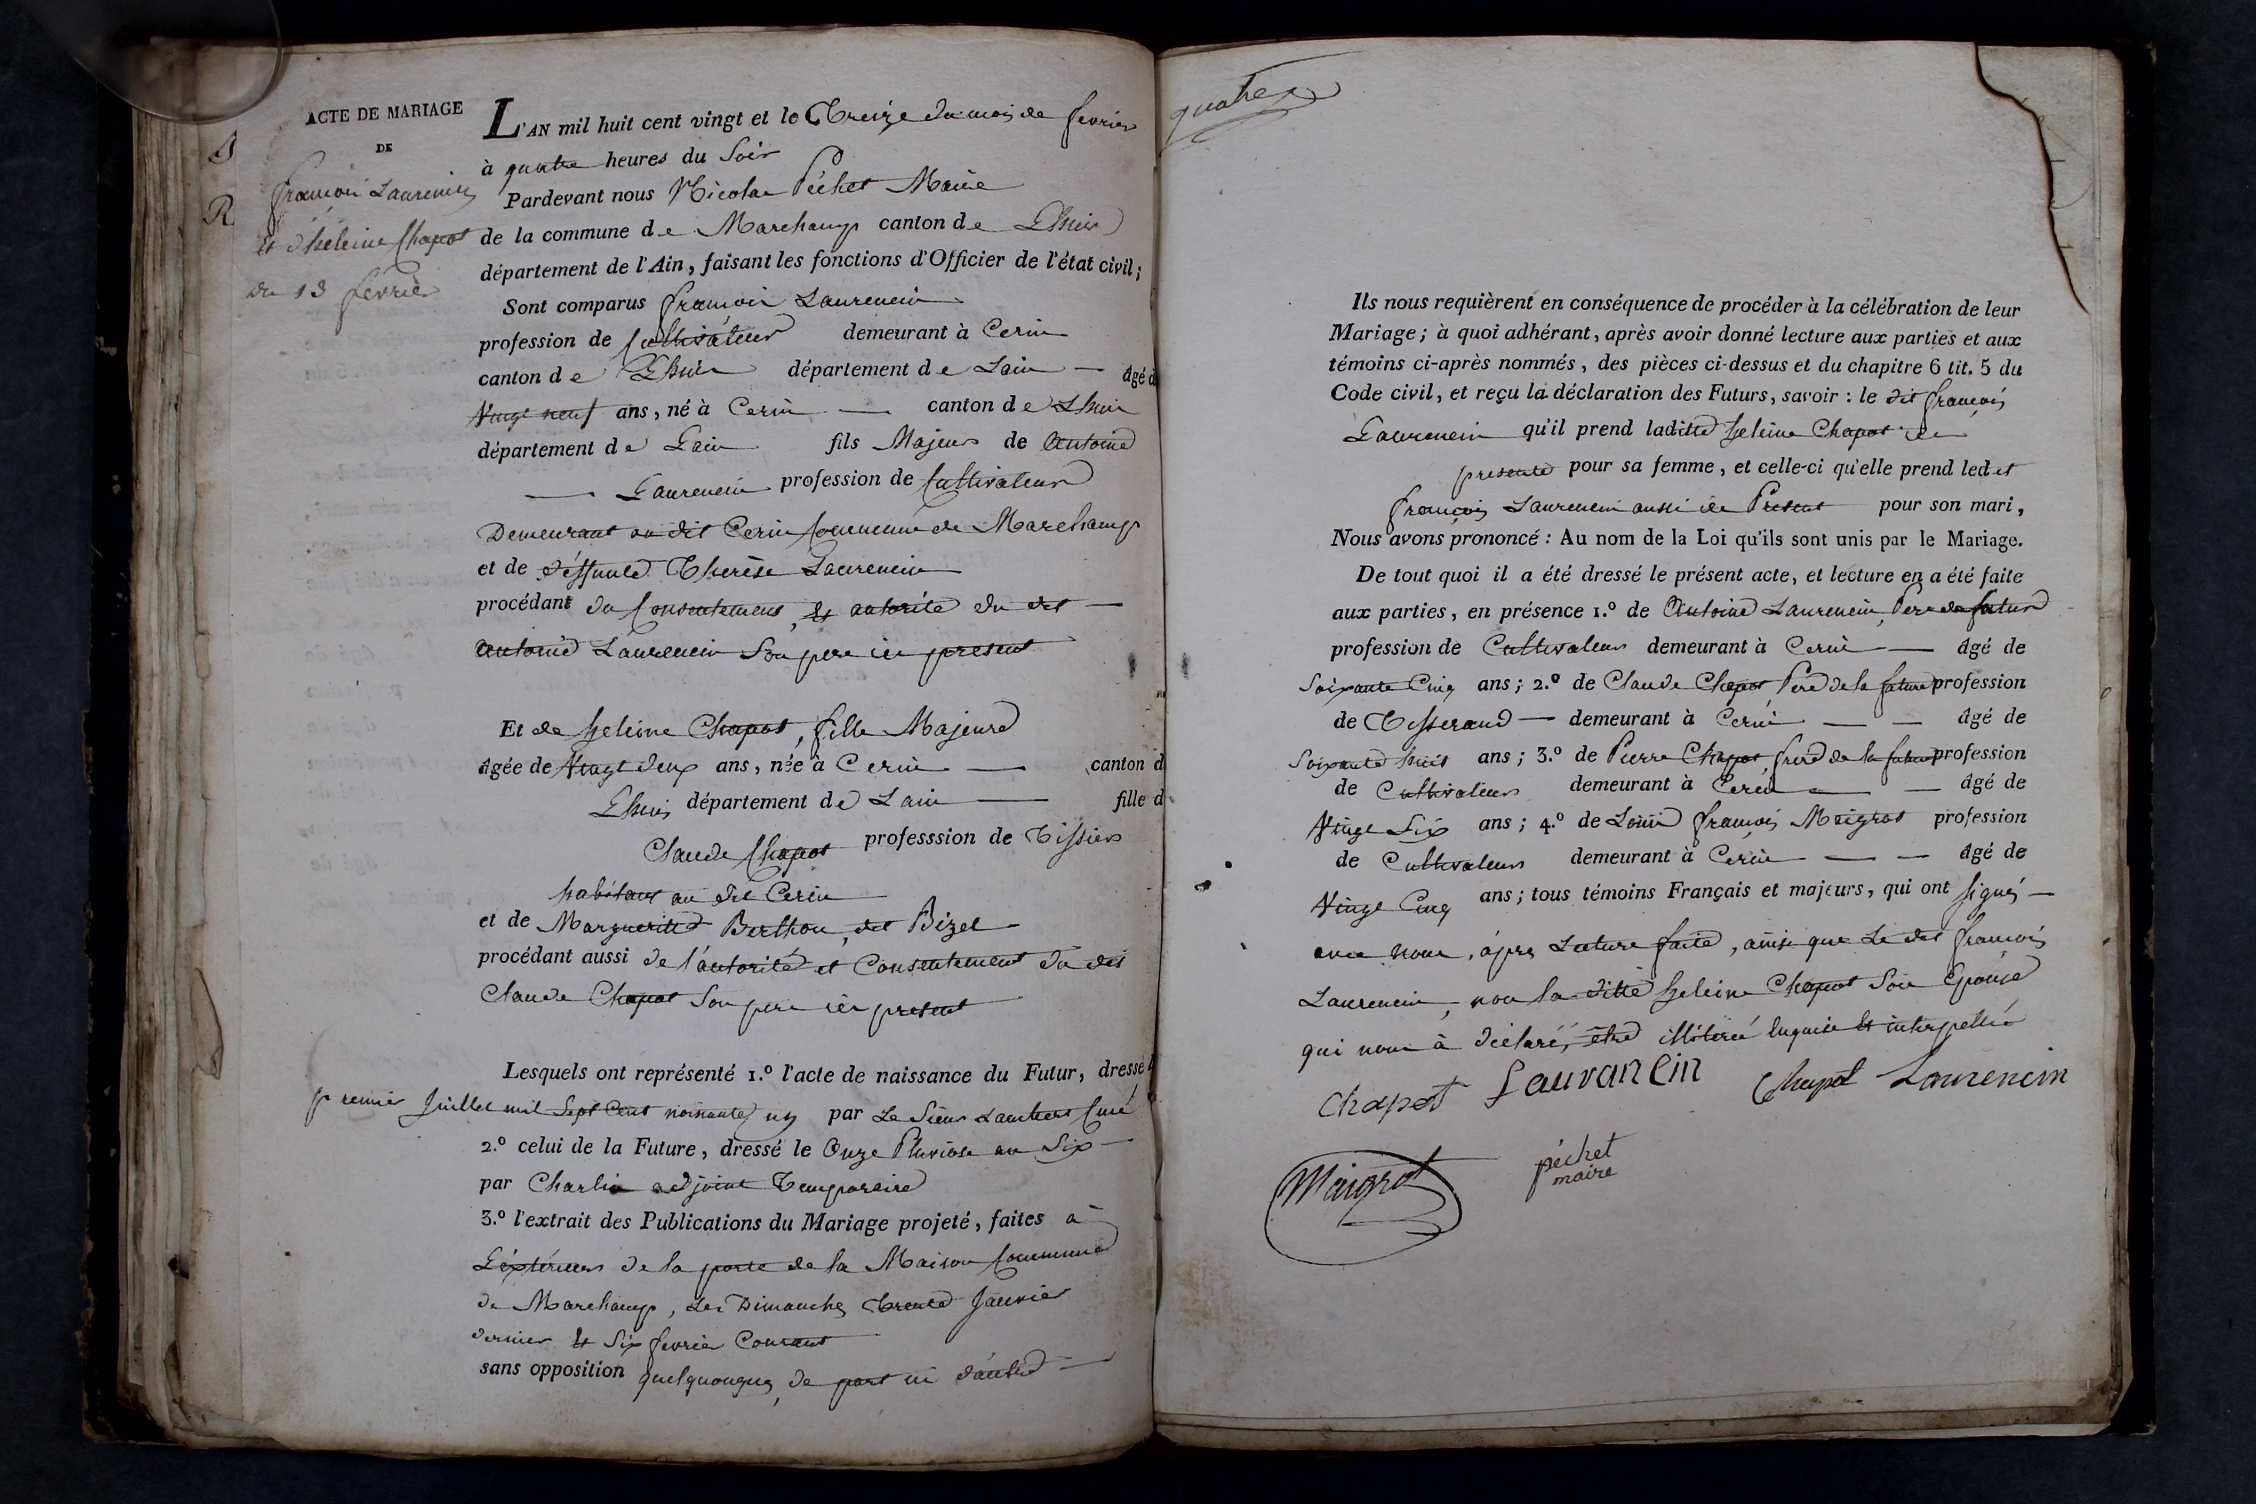 ACTE DE MARIAGE
DE
françois Laurencin
et d'héleine Chapot
du 13 février
R
L'AN mil huit cent vingt et le Treize du mois de fevrier
à quatre heures du Soir
Pardevant nous Nicolas Péchet Maire
de la commune de Marchamp canton de Lhuis
département de l'Ain, faisant les fonctions d'Officier de l'état civil;
Sont comparus françois Laurencin
profession de Cultivateur demeurant à Cerin
canton de Lhuis département de Lain — âgé d
Vingt neuf ans, né à Cerin — canton de Lhuis
département de Lain fils Majeur de Antoine
— Laurencin profession de Cultivateur
Demeurant au dit Cerin Commune de Marchamp
et de déffunte Therèse Laurencin
procédant du Consentement, et autorité du dit —
Antoine Laurencin Son pere ici present
Et de heleine Chapot, fille Majeure
âgée de Vingt deux ans, née à Cerin — canton d
Lhuis département de Lain — fille d
Claude Chapot professsion de Tissier
habitant au dit Cerin
et de Marguerite Berthon, dit Bizel
procédant aussi de l'autorité et Consentement du dit
Claude Chapot Son pere ici present
Lesquels ont représenté 1.º l'acte de naissance du Futur, dressé l
premier Juillet mil Sept Cent nonante un par Le Sieur Lambert Curé
2.º celui de la Future, dressé le Onze Pluviose an Six —
par Charlin adjoint Temporaire
3.º l'extrait des Publications du Mariage projeté, faites a
L'éxtérieur de la porte de la Maison Commune
de Marchamp, Les Dimanches trente Janvier
dernier et Six fevrier Courant
sans opposition quelquonques, de part ni d'autre —
quatre
Ils nous requièrent en conséquence de procéder à la célébration de leur
Mariage; à quoi adhérant, après avoir donné lecture aux parties et aux
témoins ci-après nommés, des pièces ci-dessus et du chapitre 6 tit. 5 du
Code civil, et reçu la déclaration des Futurs, savoir: le dit françois
Laurencin qu'il prend laditte heleine Chapot ici
presente pour sa femme, et celle-ci qu'elle prend ledit
françois Laurencin aussi ici Present pour son mari,
Nous avons prononcé: Au nom de la Loi qu'ils sont unis par le Mariage.
De tout quoi il a été dressé le présent acte, et lecture en a été faite
aux parties, en présence 1.º de Antoine Laurencin, Pere du futur
profession de Cultivateur demeurant à Cerin — âgé de
Soixante Cinq ans; 2.º de Claude Chapot Pere de la future profession
de Tisserand — demeurant à Cerin — — âgé de
Soixante huit ans; 3.º de Pierre Chapot, frere de la future profession
de Cultivateur demeurant à Cerin — — âgé de
Vingt Six ans; 4.º de Louis françois Meigrot profession
de Cultivateur demeurant à Cerin — — âgé de
Vingt Cinq ans; tous témoins Français et majeurs, qui ont signés —
avec nous, après Lecture faite, ainsi que Le dit françois
Laurencin, non la ditte heleine Chapot Son Epouse
qui nous à déclaré, être illiterée enquise et interpellée
chapot Lauvancin Chapot Laurencin
Maigrot péchet
maire